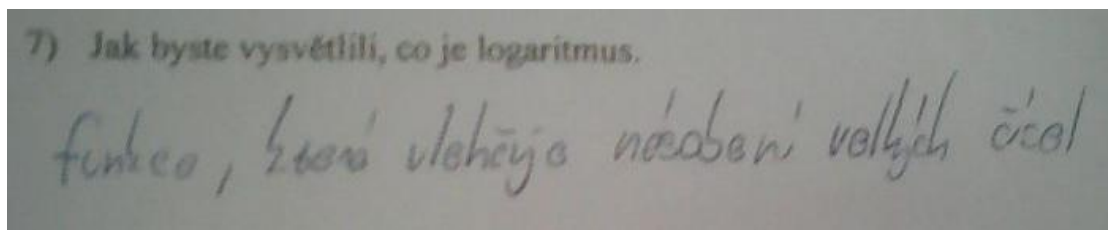 7) Jak byste vysvětlili, co je logaritmus.
funkce, která ulehčuje násobení velkých čísel